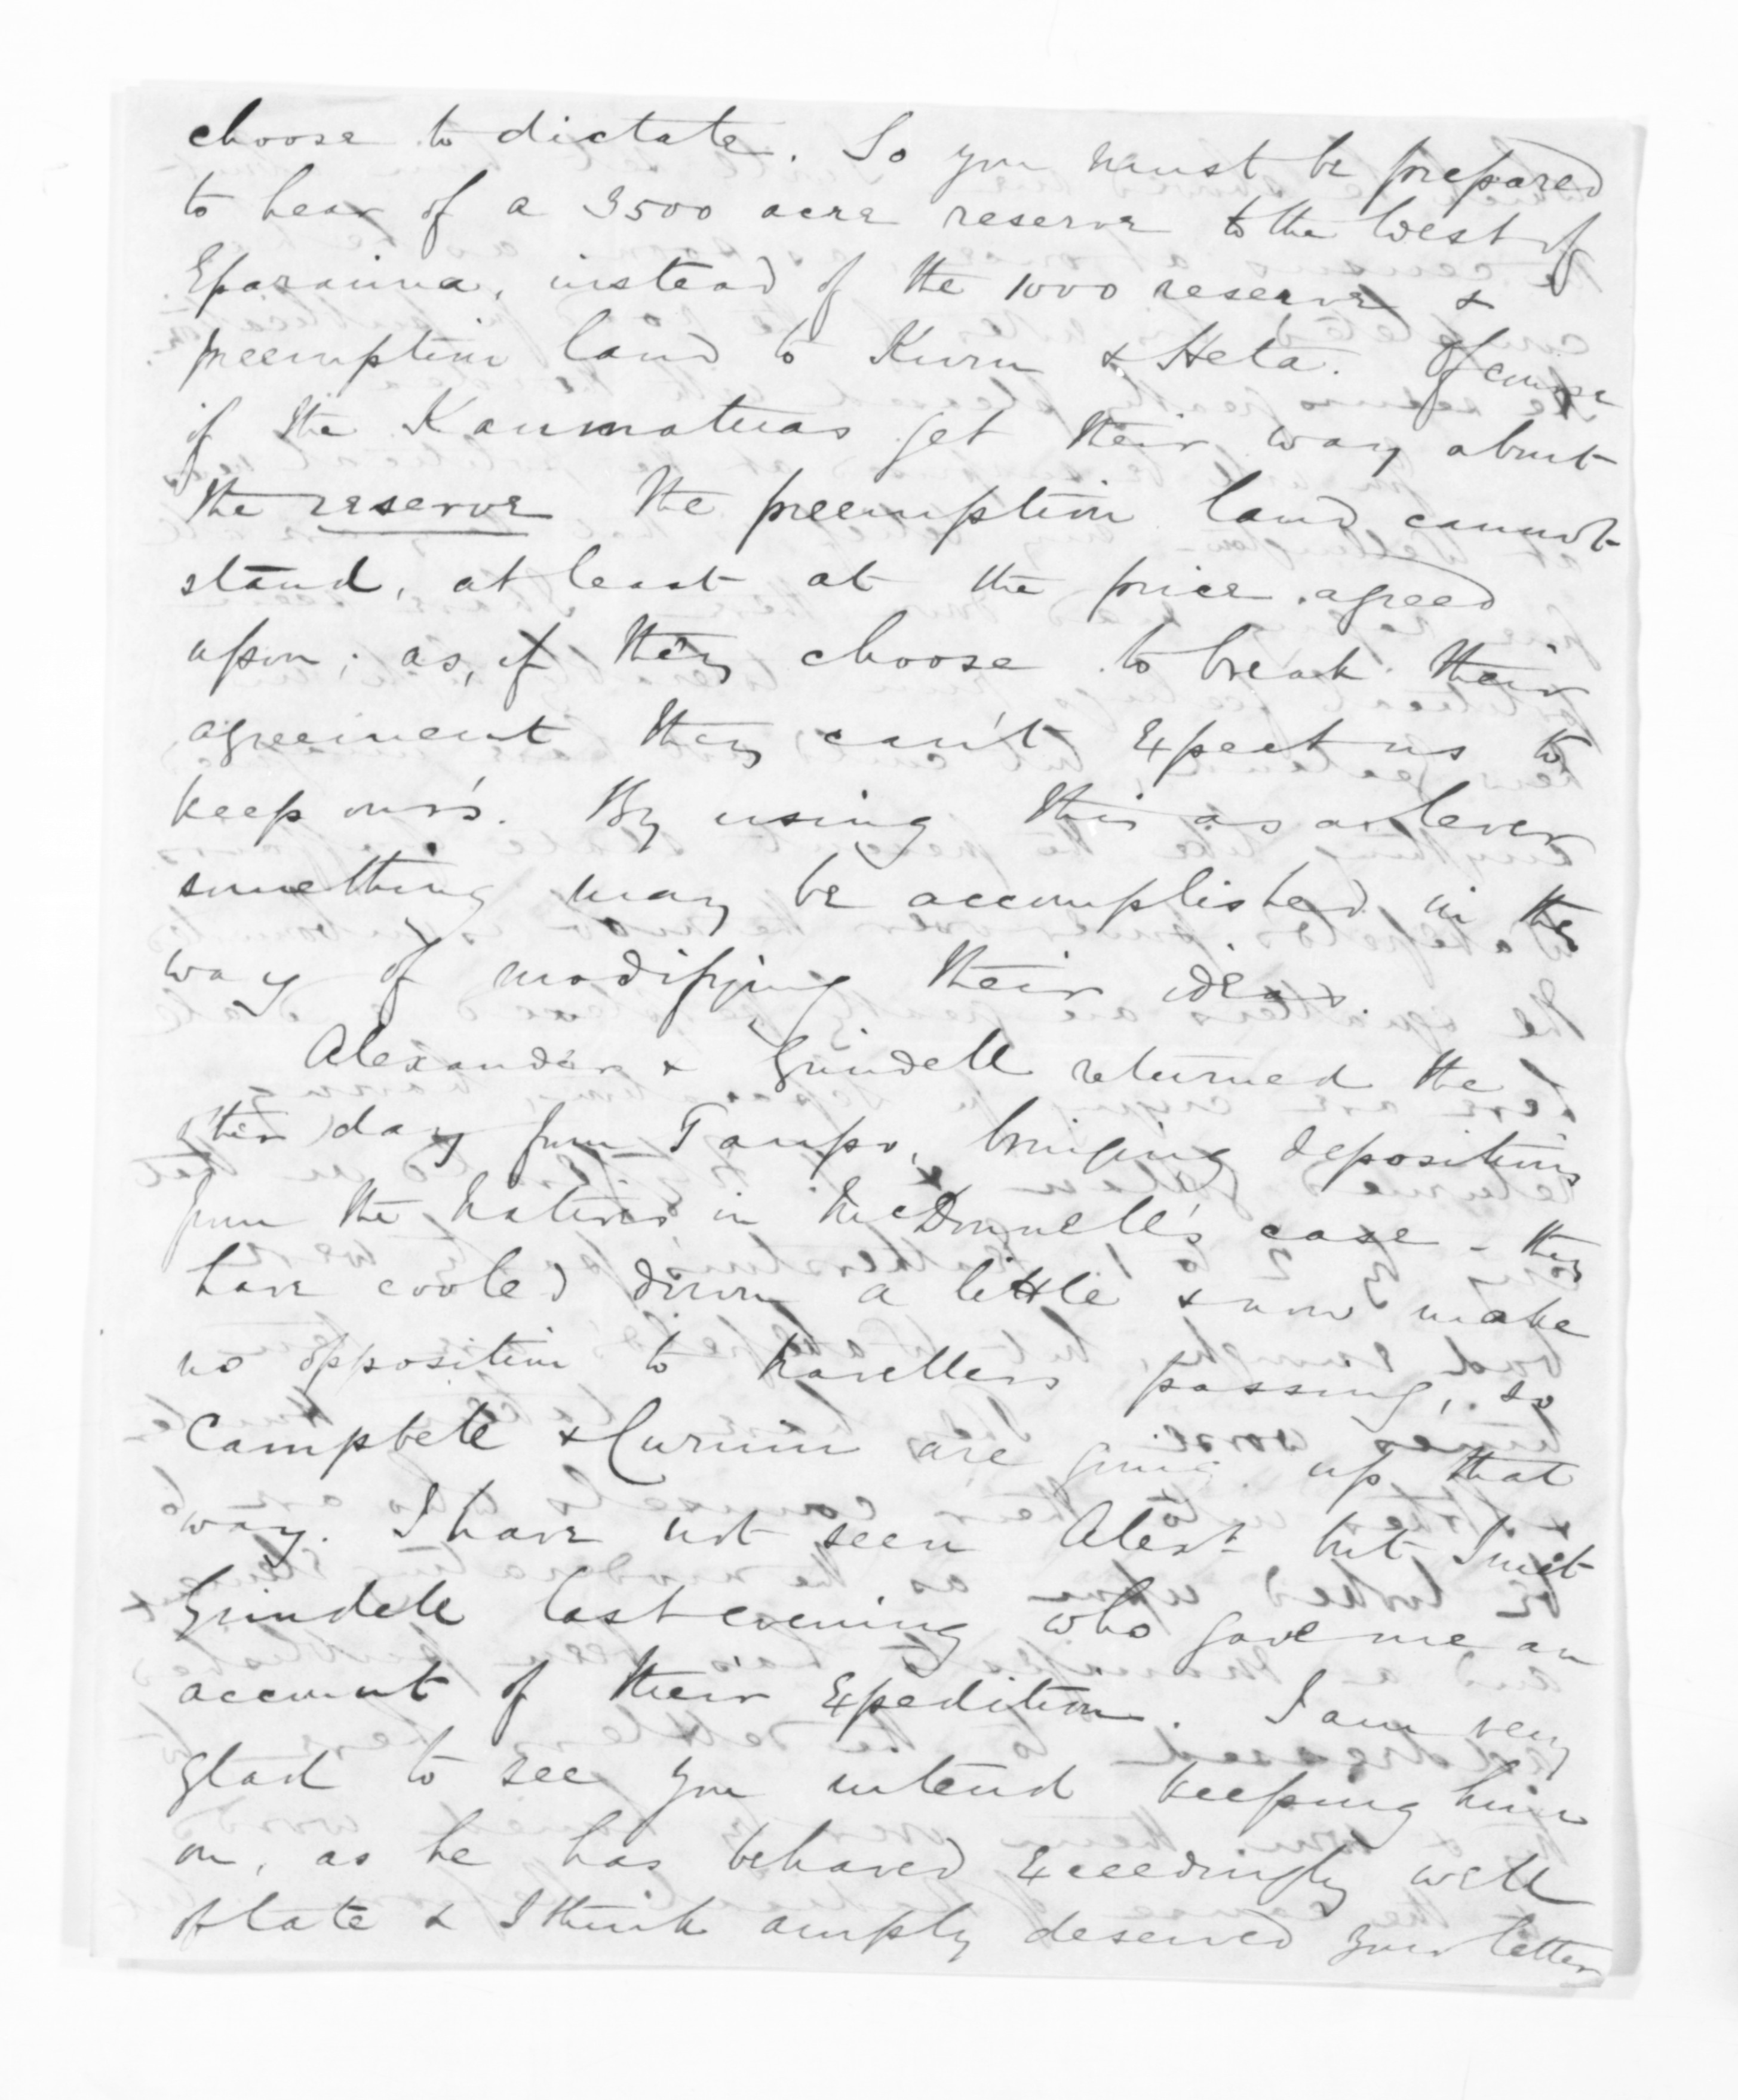 choose to dictate. So you must be prepared
to hear of a 3500 acre reserve to the West of
Eparaima, instead of the 1000 reserve &
preemption land to Kuru & Heta. Of course
if the Kaumatuas get their way about
the reserve the preemption land cannot
stand, at least at the price agreed
upon; as, if they choose to break their
agreement they can't expect us to
keep our's. By using this as a lever
something may be accomplished in the
way of modifying their ideas.
Alexander & Grindell returned the
other day from Taupo, bringing depositions
from the Natives in McDonnell's case - they
have cooled down a little & now make
no opposition to travellers passing, so
Campbell & Curnin are going up that
way. I have not seen Alexr. but I met
Grindell last evening who gave me an
account of their expedition. I am very
glad to see you intend keeping him
on, as he has behaved exceedingly well
of late & I think amply deserved your letter